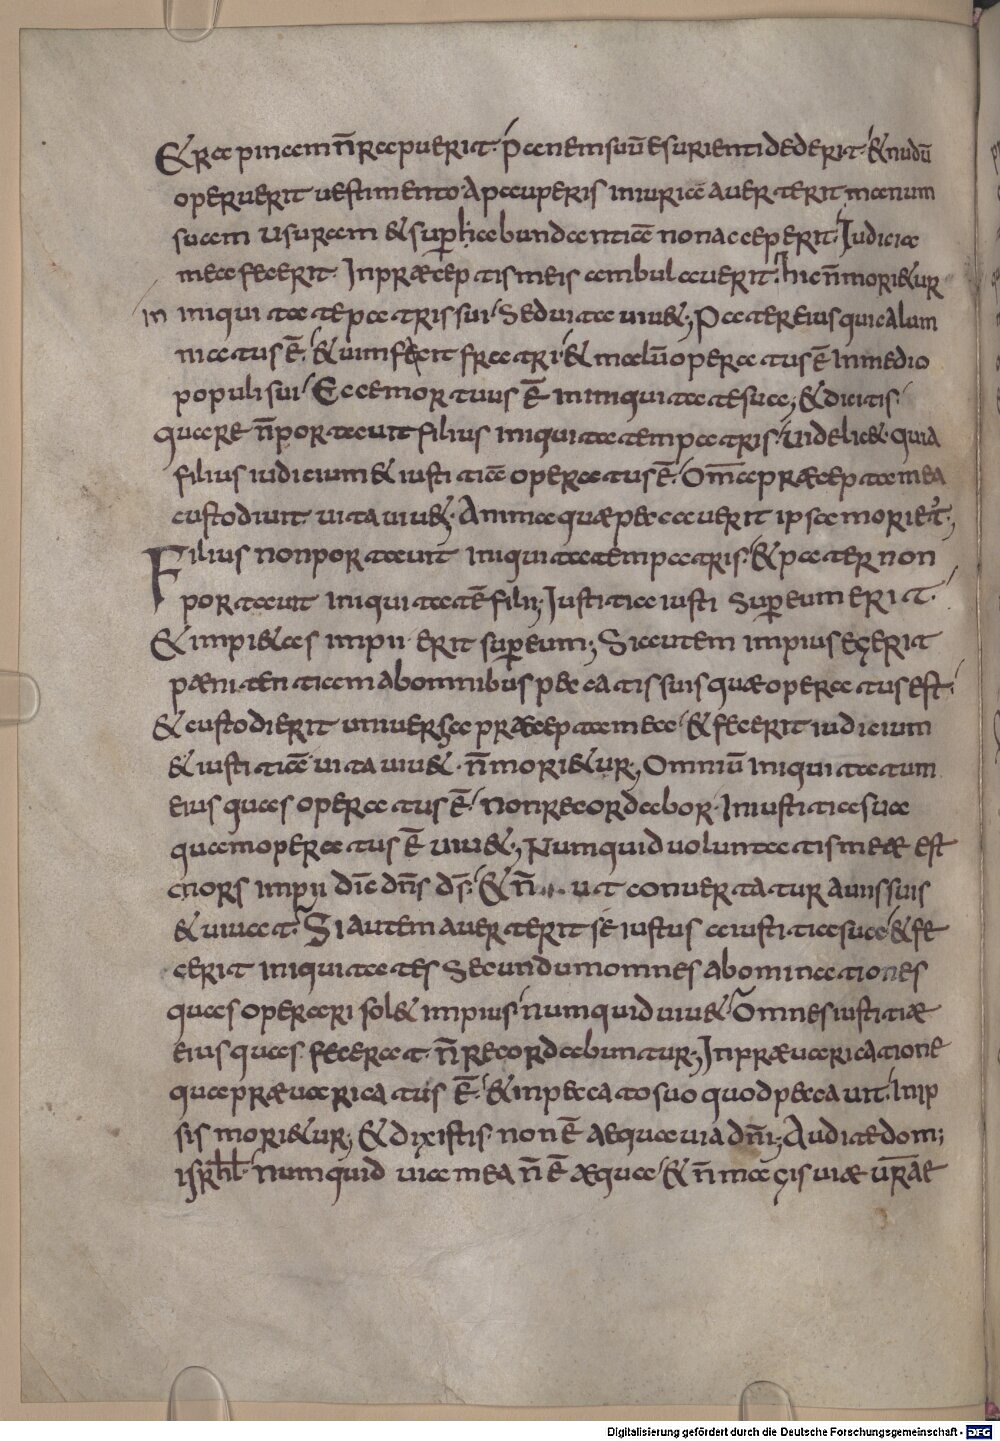 & rapinam n̄ rapuerit· panem suū esurienti dederit· & nudū
operuerit uestimento· A pauperis iniuriā auerterit manum
suam usuram & sup̄habundantiā non acceperit· Iudicia
mea fecerit· In præceptis meis ambulauerit· hic n̄ mori&ur
in iniquitate patris sui· Sed uita uiu&; Pater eius qui calum
niatus ē· & uim fecit fratri· & malū operatus ē in medio
populi sui· Ecce mortuus ē in iniquitate sua; & dicitis·
quare n̄ portauit filius iniquitatem patris· uidelic& quia
filius iudicium & iustitiā operatus ē· Om̄a præcepta mea
custodiuit· uita uiu&; Anima quæ peccauerit ipsa moriet̄;
Filius non portauit iniquitatem patris· & pater non
portauit iniquitatē filii; Iustitia iusti sup̄ eum erit·
& impi&as impii erit sup̄ eum; Si autem impius egerit
pænitentiam ab omnibus peccatis suis quæ operatus est·
& custodierit uniuersa præcepta mea· & fecerit iudicium
& iustitiā uita uiu& · n̄ mori&ur; Omniū iniquitatum
eius quas operatus ē· non recordabor· In iustitia sua
quam operatus ē uiu&; Numquid uoluntatis meæ est
mors impii dīc dn̄s ds̄· & n̄ ut conuertatur a uiis suis
& uiuat· Si autem auerterit sē iustus a iustitia sua· & fe
cerit iniquitates secundum omnes abominationes
quas operari sol& impius· numquid uiu&· Omnes iustitiæ
eius quas fecerat· n̄ recordabuntur; In præuaricatione
qua præuaricatus ē· & in peccato suo quod peccauit· in ip
sis mori&ur; & dixistis· non ē aequa uia dn̄i; Audite dom;
isrl̄· numquid uia mea n̄ ē æqua· & n̄ magis uiæ ur̄ae
Digitalisierung gefördert durch die Deutsche Forschungsgemeinschaft - DFG